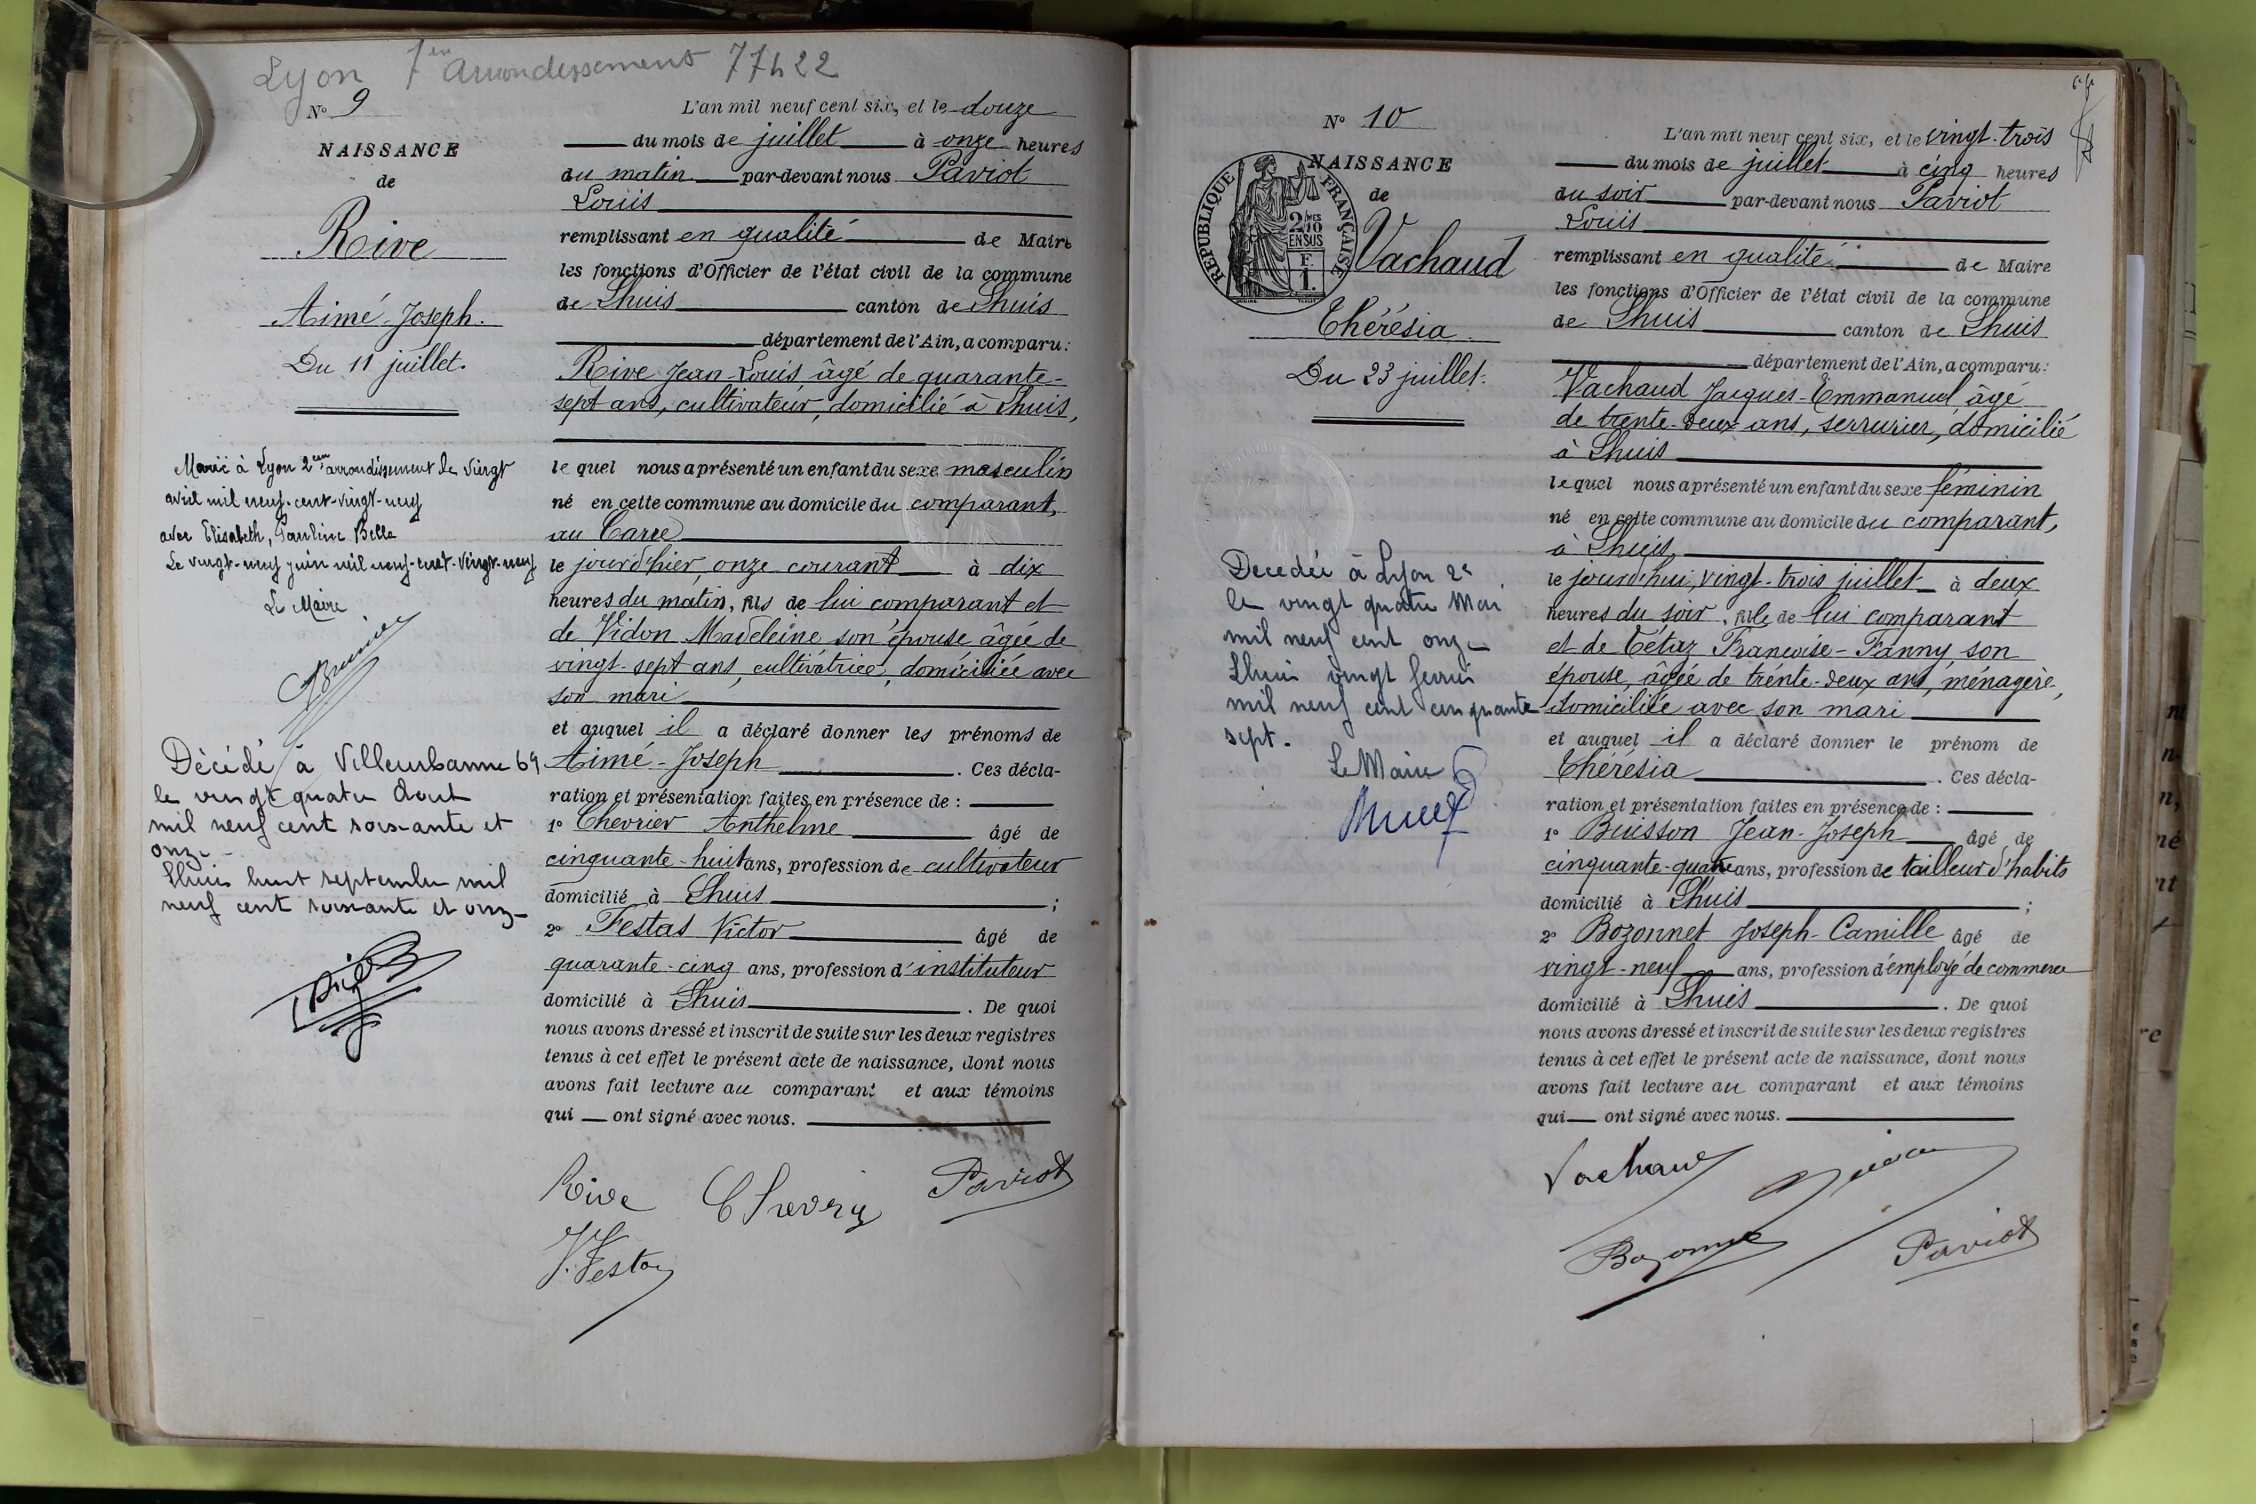 Lyon 7em Arrondissement 77422
N° 9
NAISSANCE
de
Rive
Aimé-Joseph.
Du 11 juillet.
Marié à Lyon 2em arrondissement le vingt
avril mil neuf-cent-vingt-neuf
avec Elisabeth, Pauline Belle
Le vingt-neuf juin mil neuf-cent-vingt-neuf
Le Maire
Décédé à Villeurbanne 69
le vingt quatre Aout
mil neuf cent soixante et
onze -
Lhuis huit septembre mil
neuf cent soixante et onze -
L'an mil neuf cent six, et le douze
du mois de juillet à onze heures
du matin par-devant nous Paviot
Louis
remplissant en qualité de Maire
les fonctions d'Officier de l'état civil de la commune
de Lhuis canton de Lhuis
département de l'Ain, a comparu:
Rive Jean-Louis âgé de quarante-
sept ans, cultivateur, domicilié à Lhuis,
lequel nous a présenté un enfant du sexe masculin
né en cette commune au domicile du comparant,
au Carre
le jour d'hier, onze courant à dix
heures du matin, fils de lui comparant et
de Vidon Madeleine son épouse âgée de
vingt-sept ans, cultivatrice, domiciliée avec
son mari
et auquel il a déclaré donner les prénoms de
Aimé-Joseph. Ces décla-
ration et présentation faites en présence de :
1° Chevrier Anthelme âgé de
cinquante-huit ans, profession de cultivateur
domicilié à Lhuis ;
2° Festas Victor âgé de
quarante-cinq ans, profession d'instituteur
domicilié à Lhuis. De quoi
nous avons dressé et inscrit de suite sur les deux registres
tenus à cet effet le présent acte de naissance, dont nous
avons fait lecture au comparant et aux témoins
qui ont signé avec nous.
Rive Chevrier Paviot
V. Festas
N° 10
NAISSANCE
de
RÉPUBLIQUE FRANÇAISE
2/10 EN SUS
F. 1.
Vachaud
Thérésia.
Du 23 juillet.
Decedée à Lyon 2e
le vingt quatre Mai
mil neuf cent onze
Lhuis vingt
mil neuf cent cinquante
sept.
Le Maire
L'an mil neuf cent six, et le vingt-trois
du mois de juillet à cinq heures
du soir par-devant nous Paviot
Louis
remplissant en qualité de Maire
les fonctions d'Officier de l'état civil de la commune
de Lhuis canton de Lhuis
département de l'Ain, a comparu:
Vachaud Jacques-Emmanuel âgé
de trente-deux ans, serrurier, domicilié
à Lhuis
lequel nous a présenté un enfant du sexe féminin
né en cette commune au domicile du comparant,
à Lhuis
le jour d'hui, vingt-trois juillet à deux
heures du soir, fille de lui comparant
et de Tétaz Françoise-Fanny son
épouse, âgée de trente-deux ans, ménagère,
domiciliée avec son mari
et auquel il a déclaré donner le prénom de
Thérésia. Ces décla-
ration et présentation faites en présence de :
1° Buisson Jean-Joseph âgé de
cinquante-quatre ans, profession de tailleur d'habits
domicilié à Lhuis ;
2° Bozonnet Joseph-Camille âgé de
vingt-neuf ans, profession d'employé de commerce
domicilié à Lhuis. De quoi
nous avons dressé et inscrit de suite sur les deux registres
tenus à cet effet le présent acte de naissance, dont nous
avons fait lecture au comparant et aux témoins
qui ont signé avec nous.
Vachaud
Bozonnet Paviot